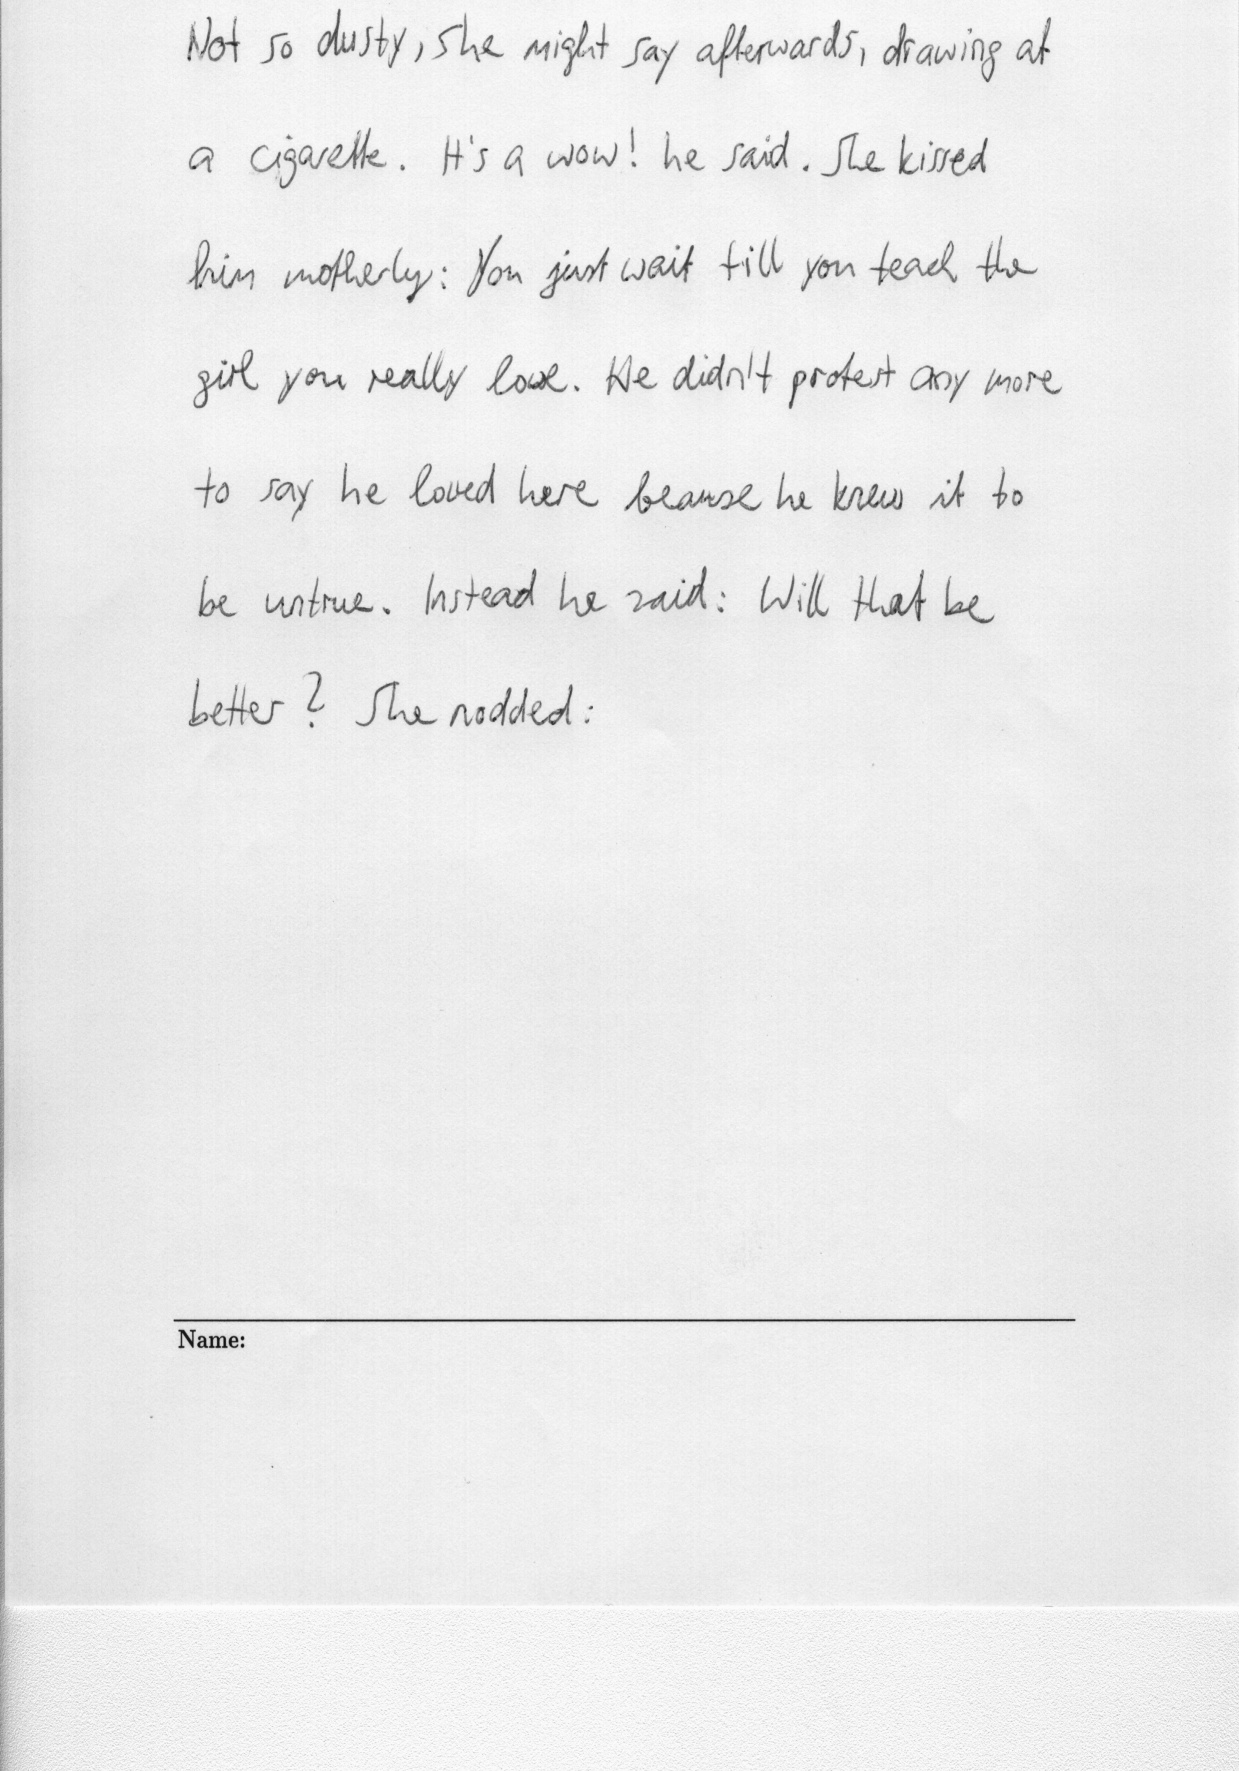 Not so dusty, she might say afterwards, drawing at
a cigarette. It's a wow! he said. She kissed
him motherly: You just wait till you teach the
girl you really love. He didn't protest any more
to say he loved here beause he knew it to
be untrue. Instead he said: Will that be
better? She nodded:
Name: